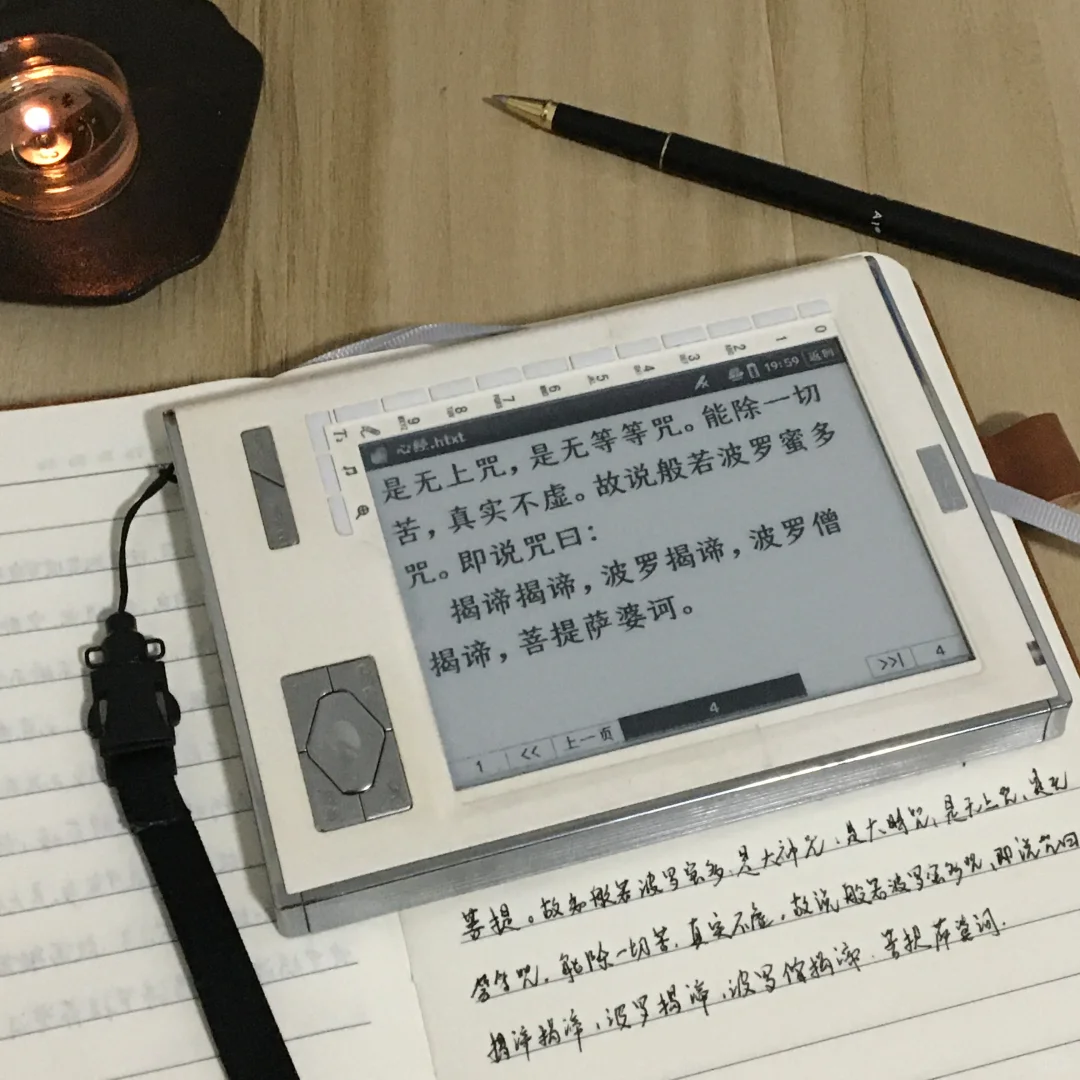 0
1
2
3
4
5
6
7
8
9
心经.htxt
19:59 返回
是无上咒，是无等等咒。能除一切
苦，真实不虚。故说般若波罗蜜多
咒。即说咒曰：
揭谛揭谛，波罗揭谛，波罗僧
揭谛，菩提萨婆诃。
1 << 上一页 4 >>| 4
菩提。故知般若波罗蜜多，是大神咒，是大明咒，是无上咒，是无
等等咒，能除一切苦，真实不虚，故说般若波罗蜜多咒，即说咒曰
揭谛揭谛，波罗揭谛，波罗僧揭谛，菩提萨婆诃。